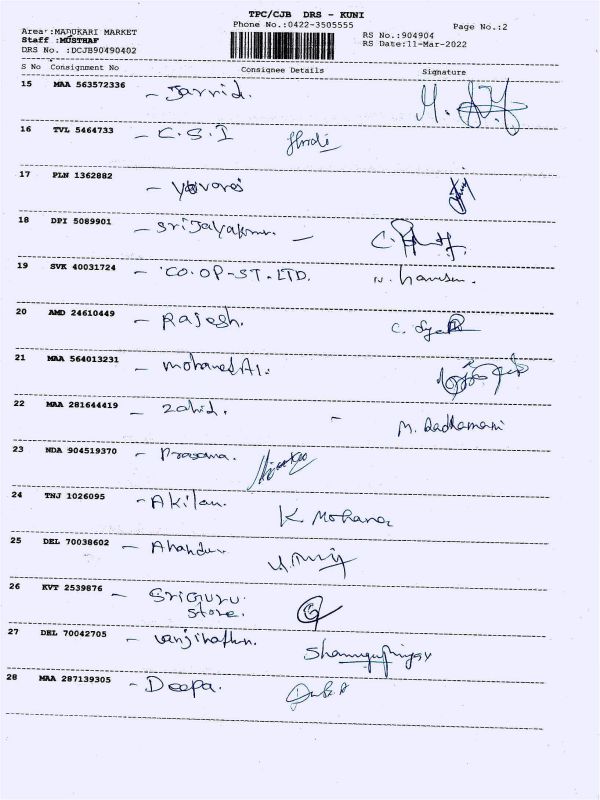 TPC/CJB DRS - KUNI
Phone No.:0422-3505555
Page No.:2
Area :MADUKARI MARKET
RS No.:904904
Staff :MUSTHAF
RS Date:11-Mar-2022
DRS No. :DCJB90490402
S No Consignment No Consignee Details Signature
15 MAA 563572336 - Jarrid.
16 TVL 5464733 - C.S.I
17 PLN 1362882
18 DPI 5089901 - Sri Jayakumar. -
19 SVK 40031724 - CO.OP-ST.LTD.
20 AMD 24610449 - Rajesh.
21 MAA 564013231 - Mohamed Al.
22 MAA 281644419 - Zahid. - M. Radhamani
23 NDA 904519370 - Prasana.
24 TNJ 1026095 - Akilan. K. Mohana
25 DEL 70038602
26 KVT 2539876 - Sri Guru
Store.
27 DEL 70042705
28 MAA 287139305 - Deepa.